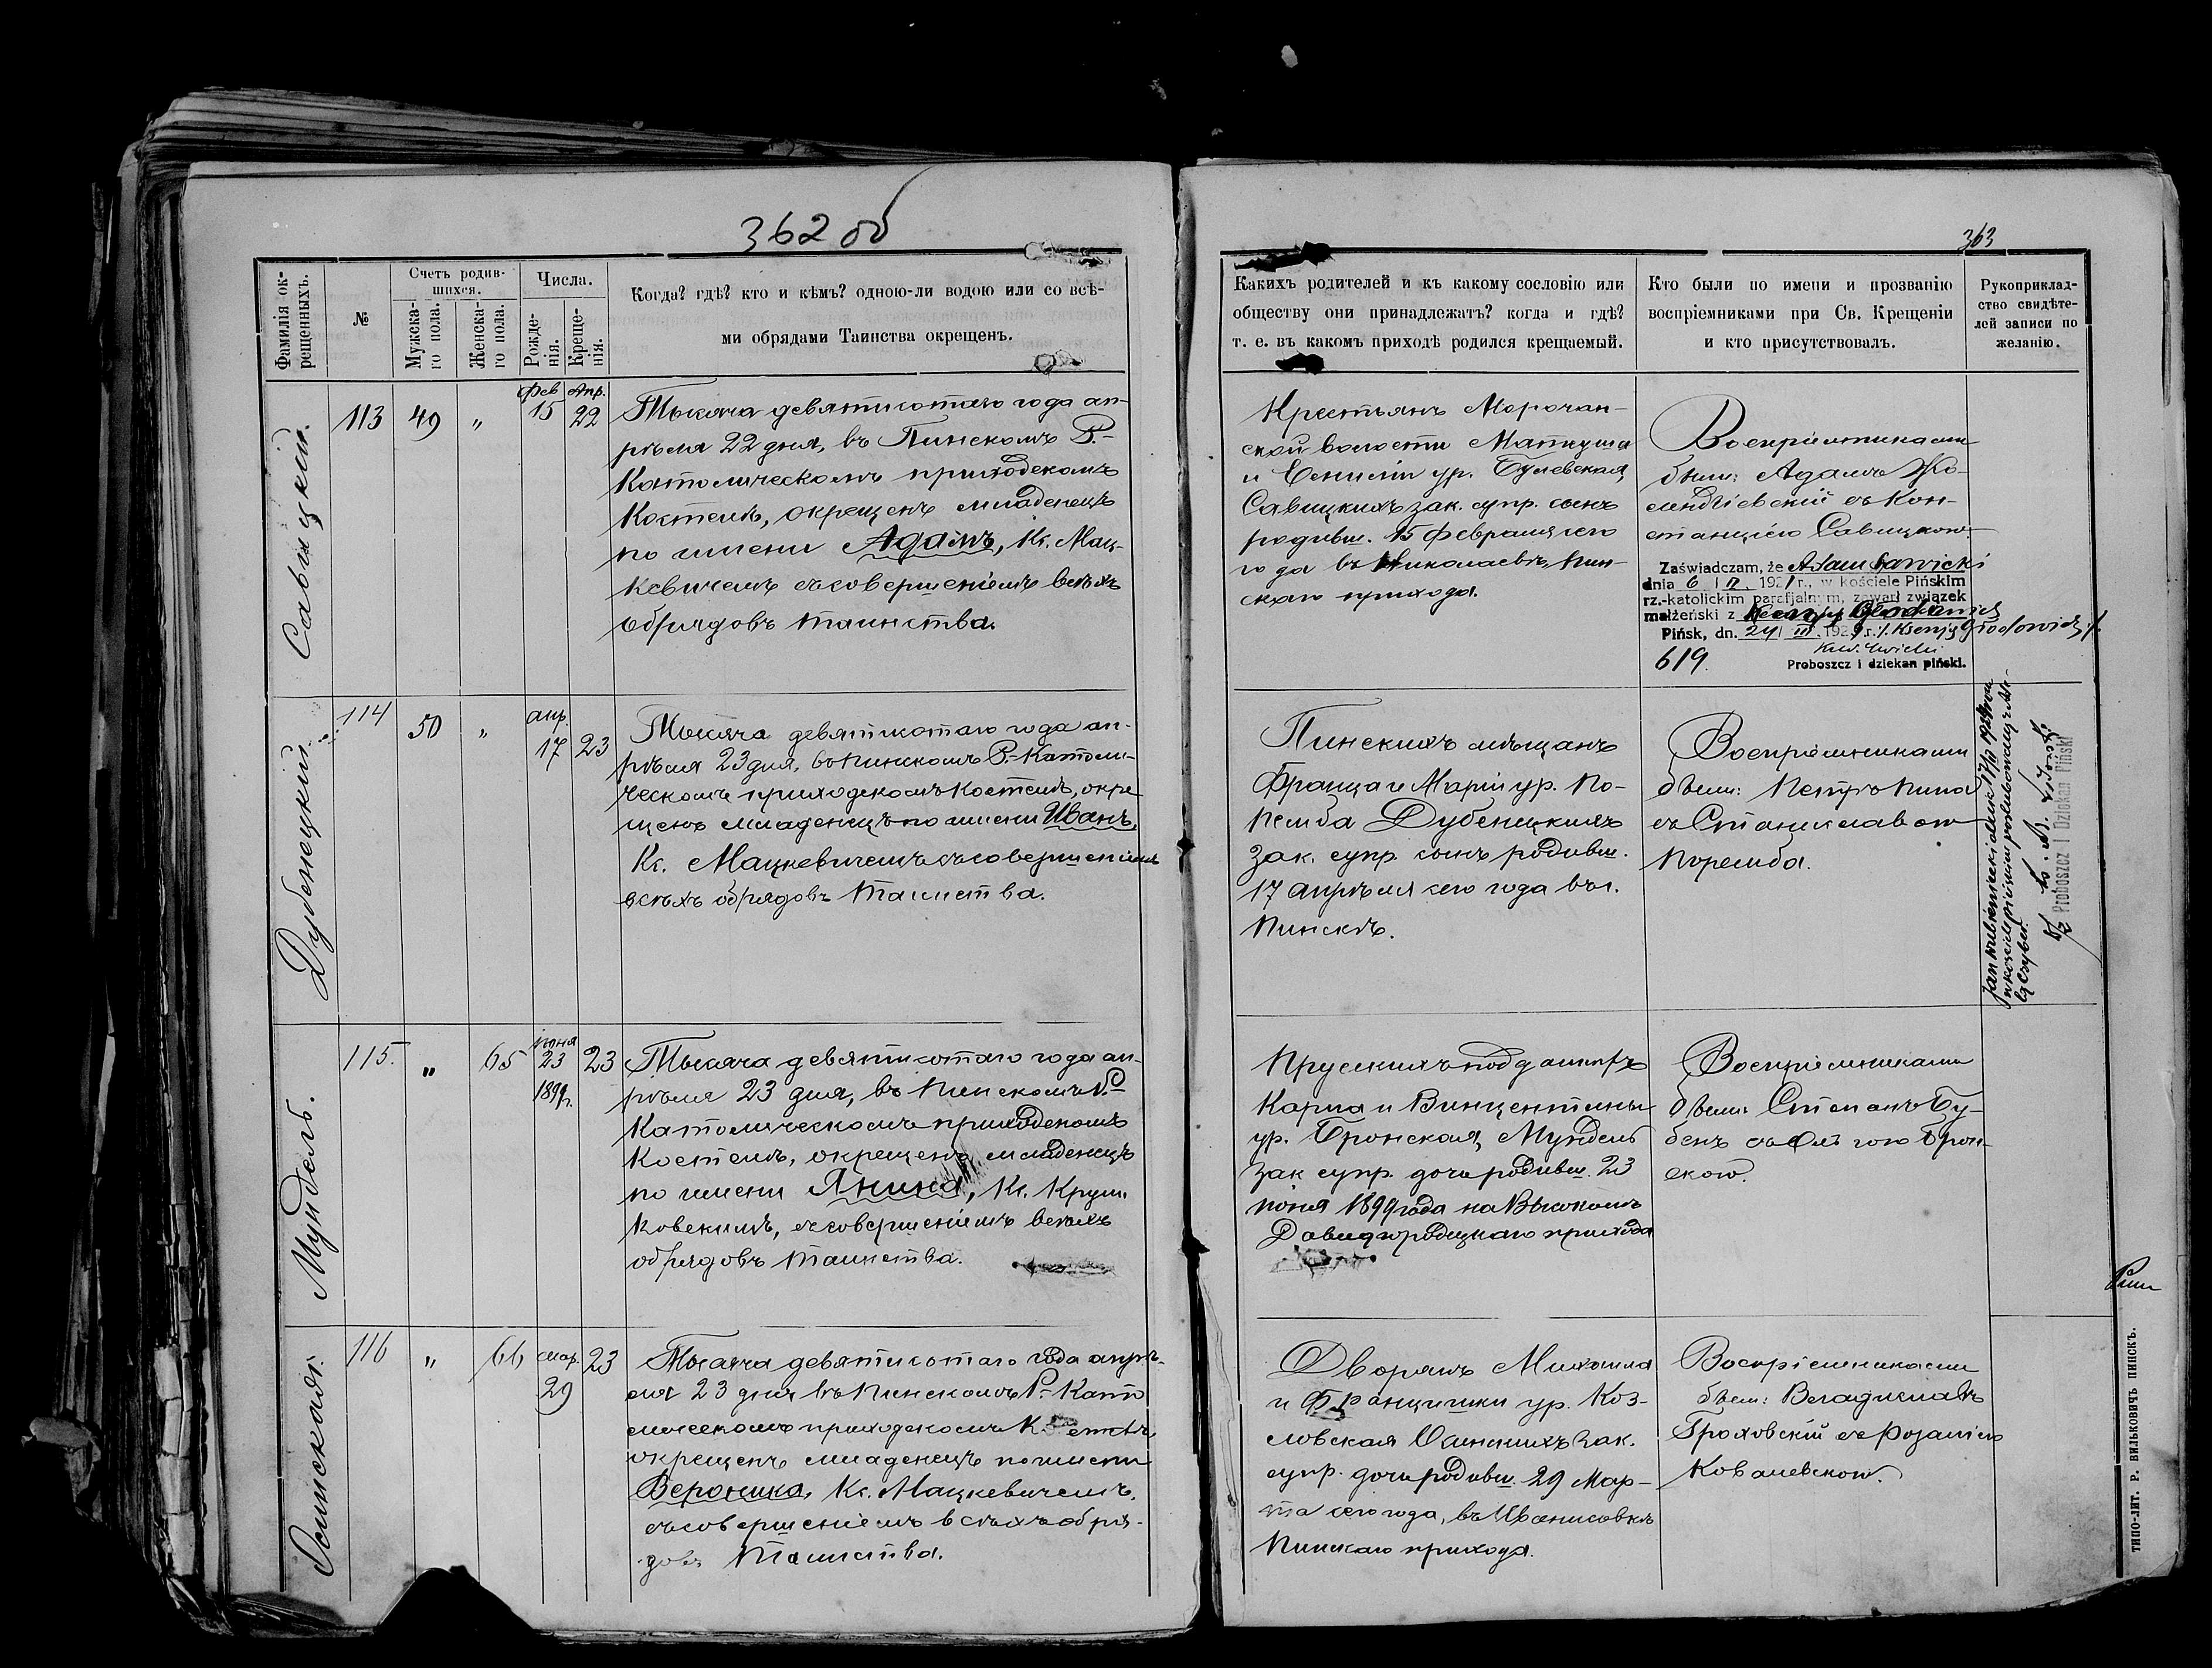 362 об
363
Фамилія ок-
рещенныхъ.
№
Счетъ родив-
шихся.
Мужска-
го пола.
Женска-
го пола.
Числа.
Рожде-
нія.
Креще-
нія.
Когда? гдѣ? кто и кѣмъ? одною-ли водою или со всѣ-
ми обрядами Таинства окрещенъ.
Какихъ родителей и къ какому сословію или
обществу они принадлежатъ? когда и гдѣ?
т. е. въ какомъ приходѣ родился крещаемый.
Кто были по имени и прозванію
воспріемниками при Св. Крещеніи
и кто присутствовалъ.
Рукоприклад-
ство свидѣте-
лей записи по
желанію.
Савицкій.
113
49
"
Фев
15
Апр.
22
Тысяча девятисотаго года ап-
рѣля 22 дня, въ Пинскомъ Р.-
Католическомъ приходскомъ
Костелѣ, окрещенъ младенецъ
по имени Адамъ, Кс. Мац-
кевичемъ съ совершеніемъ всѣхъ
обрядовъ таинства.
Крестьянъ Морочан-
ской волости Матвуша
и Ксеніи ур. Булевская,
Савицкихъ зак. супр. сынъ
родивш. 15 февраля сего
года въ Николаевѣ, Пин-
скаго прихода.
Воспріемниками
были: Адамъ
съ Кон-
станціею Савицкою.
Zaświadczam, że Adam Sawicki
dnia 6 | II 1921 r., w kościele Pińskim
rz.-katolickim parafjalnym, zawarł związek
małżeński z
Pińsk, dn. 24 | III 192 r. /. Ksenją Głodowicz /.
619.
Proboszcz i dziekan piński.
Дубенецкій.
114
50
"
апр.
17
23
Тысяча девятисотаго года ап-
рѣля 23 дня, въ Пинскомъ Р.-Католи-
ческомъ приходскомъ Костелѣ, окре
щенъ младенецъ по имени Иванъ,
Кс. Мацкевичемъ съ совершеніемъ
всѣхъ обрядовъ таинства.
Пинскихъ мѣщанъ
Франца и Маріи ур. По-
Дубенецкихъ
зак. супр. сынъ родивш.
17 апрѣля сего года въ г.
Пинскѣ.
Воспріемниками
были: Петръ
съ Станиславою
Поремба.
Jan Dubieniecki
w kościele pińskim
Proboszcz i Dziekan Piński
Мундель.
115.
"
65
іюня
23
1899 г.
23
Тысяча девятисотаго года ап-
рѣля 23 дня, въ Пинскомъ Р.
Католическомъ приходскомъ
Костелѣ, окрещенъ младенецъ
по имени Янина, Кс. Круш
ковскимъ, съ совершеніемъ всѣхъ
обрядовъ таинства.
Прусскихъ подданныхъ
Карла и Винцентины
ур. Бронская, Мундель
зак супр. дочь родивш. 23
іюня 1899 года на Высокомъ
Давидгородецкаго прихода
Воспріемниками
были: Степанъ Бу-
бенъ съ Ольгою Брон-
скою.
116
"
66
мар.
29
23
Тысяча девятисотаго года апрѣ-
ля 23 дня въ Пинскомъ Р.-Като
лическомъ приходскомъ Костелѣ
окрещенъ младенецъ по имени
Вероника, Кс. Мацкевичемъ,
съ совершеніемъ всѣхъ обря-
довъ Таинства.
Дворянъ Михаила
и Францишки ур. Коз-
ловская зак.
супр. дочь родивш. 29 Мар-
та сего года, въ Иванисовкѣ
Пинскаго прихода.
Воспріемниками
были: Владиславъ
Гроховскій съ Розаліею
Ковалевскою.
ТИПО-ЛИТ. Р. ВИЛЬКОВИЧЪ ПИНСКЪ.